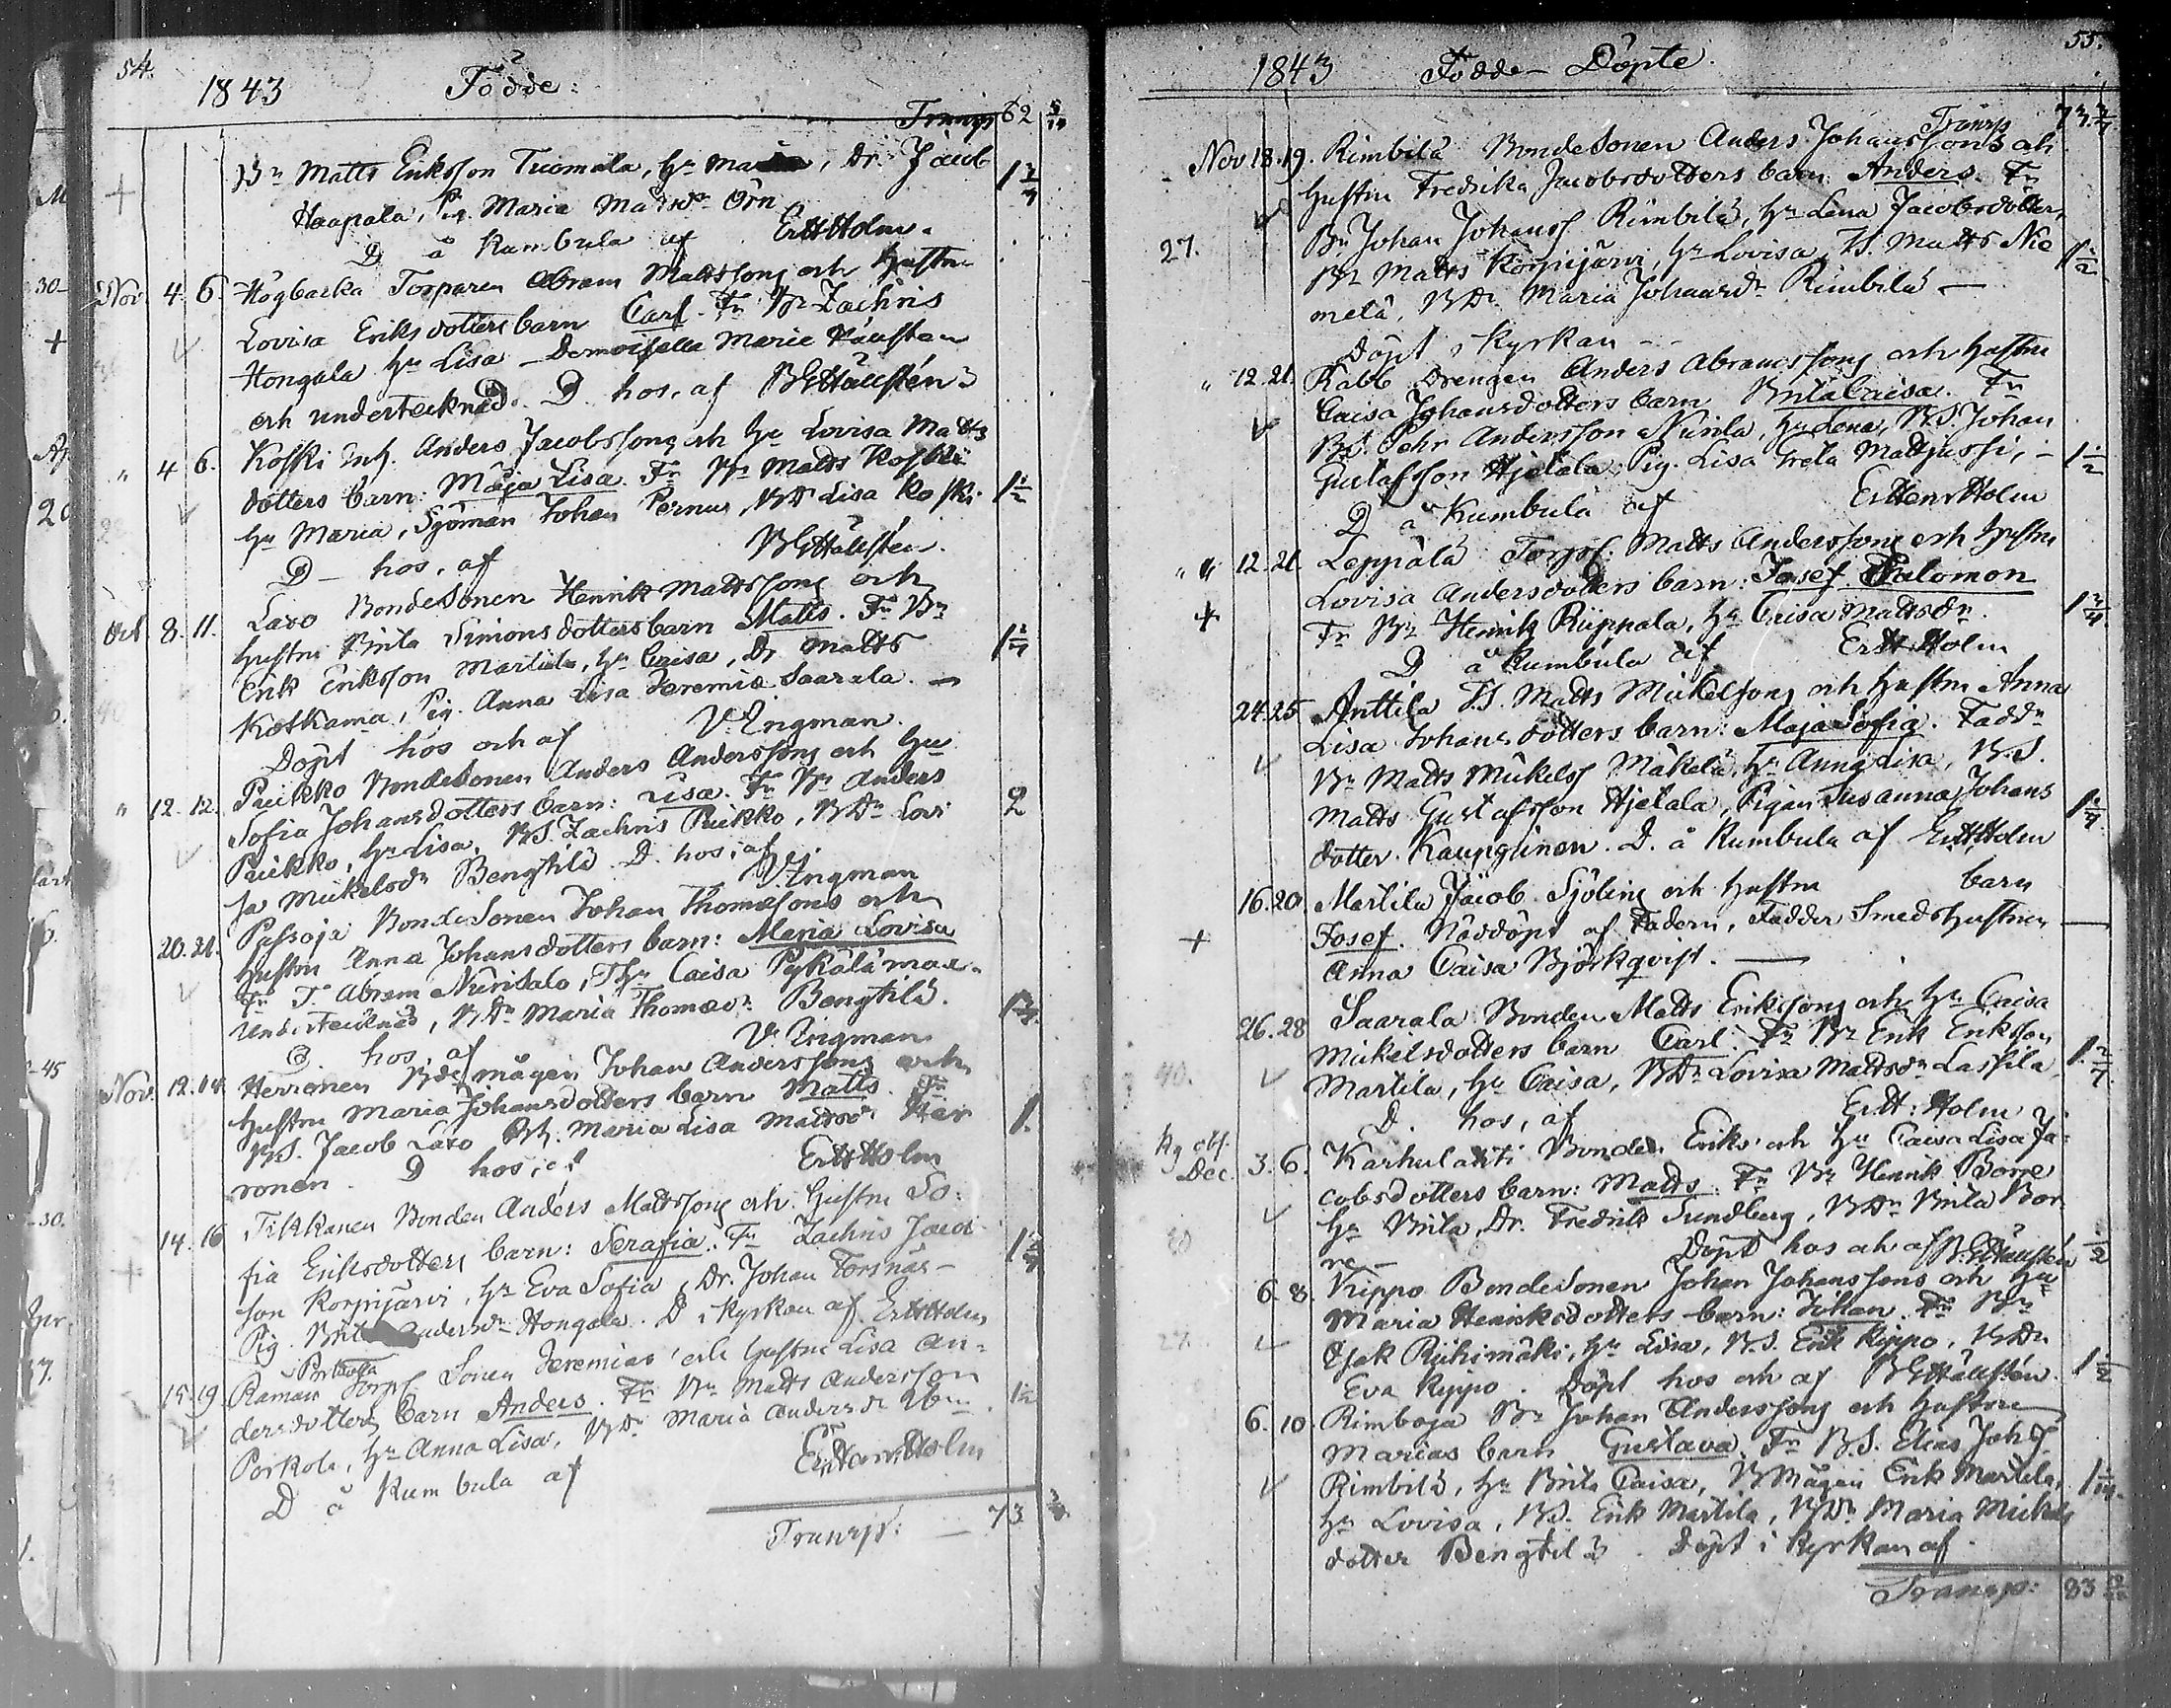 54.
1843 Födde:
Transp 62 5/14
Bn Matts Eriksson Tuomala, hu Maria, Dr. Jacob 1 3/4
Haapala, Pig. Maria Matsdr Örn
D å Kumbula af ErHHolm.
Nov. 4. 6. Högbacka Torparen Abram Mattssons och Hustru
Lovisa Eriksdotters barn Carl. Fr Bn Zachris
Hongala hu Lisa – Demoiselle Marie Hällsten
och undertecknad. D. hos, af BGHällstén
" 4 6. Koski Inh. Anders Jacobssons och hu Lovisa Matts
dotters barn: Maja Lisa. Fr Bn Matts Koski 1 1/2
hu Maria, Sjöman Johan Pernu, BDr Lisa Koski.
D – hos, af BGHällstén.
Oct 8. 11. Laxo Bondesonen Henrik Mattssons och
hustru Brita Simonsdotters barn Matts. Fr Bn
Erik Eriksson Martila, hu Caisa, Dr Matts 1 1/4
Kotkama, Pig. Anna Lisa Jeremiæ Saarala. –
Döpt hos och af V. Engman.
" 12. 12. Pukko Bondesonen Anders Anderssons och hu
Sofia Johansdotters barn: Lisa. Fr Bn Anders 2
Pukko, hu Lisa, BS. Zachris Pukko, BDr Lovi
sa Mickelsdr Bengtilä D. hos, af
V. Engman
20. 21. Passoja Bondesonen Johan Thomæsons och
Hustru Anna Johansdotters barn: Maria Lovisa
Fr T. Abram Nurisalo, T.hu Caisa Pykälämaa.
Undertecknad, BDr Maria Thomædr Bengtilä.
D. hos, af V. Engman
Nov. 12. 14 Herronen Bdemågen Johan Anderssons och
hustru Maria Johansdotters barn Matts. Fr
BS. Jacob Laxo Och. Maria Lisa Mattsdr Her 1.
ronen. D hos, af ErHHolm
14. 16 Tikkanen Bonden Anders Mattssons och Hustru So:
fia Eriksdotters barn: Serafia. Fr Zachris Jacob
son Korpijärvi, hu Eva Sofia, Dr. Johan Torsnäs –
Pig. Brita Andersdr Hongala. D i Kyrkan af ErHHolm
15. 19 Raman Torps Sonen Jeremias och hustru Lisa An=
dersdotters barn Anders. Fr Bn Matts Andersson
Porkola, hu Anna Lisa, BDr Maria Andersdr 1 1/2
D å Kumbula af ErHenrHolm
Transp: – 73
55.
1843 Födde – Döpte.
Transp 73. 3/4
Nov 18. 19. Rimbilä Bondesonen Anders Johanssons och
hustru Fredrika Jacobsdotters barn: Anders. Fr
27. Bn Johan Johanss Rimbilä, hu Lena Jacobsdotter,
Bn Matts Korpijärvi, hu Lovisa, BS. Matts Nie 1 1/2
melä, BDr Maria Johansdr Rimbilä –
Döpt i Kyrkan –
" 12. 21. Kabb Drengen Anders Abramssons och hustru
Caisa Johansdotters barn Brita Caisa. Fr
Bn Pehr Andersson Nurila, hu Lena, BS. Johan
Gustafsson Hjetala, Pig. Lisa Greta Mattjussi, – 1 1/2
D å Kumbula af ErHenrHolm
" 12. 21. Leppälä Torps. Matts Anderssons och hustru
Lovisa Andersdotters barn: Josef Salomon
Fr Bn Henrik Riippala, hu Caisa Mattsdr. 1 3/4
D å Kumbula af ErHHolm
24. 25 Anttila T.S. Matts Mickelssons och hustru Anna
Lisa Johansdotters barn: Maja Sofia. Faddr
Bn Matts Mickelss Mäkelä, hu Anna Lisa, BS.
Matts Gustafsson Hjetala, Pigan Susanna Johans 1 1/4
dotter Kaupguinen. D. å Kumbula af ErHHolm
16. 20. Martila Jacob Sjölins och hustru barn
Josef. Nöddöpt af Fadern, Fadder Smedshustrun
Anna Caisa Björkqvist. –
26. 28 Saarala Bonden Matts Erikssons och hu Caisa
Mickelsdotters barn Carl. Fr Bn Erik Eriksson
40. Martila, hu Caisa, BDr Lovisa Mattsdr Laskila 1. 3/4
D. hos, af ErH: Holm
Dec. 3. 6. Karhulahti Bonden Eriks och hu Caisa Lisa Ja=
cobsdotters barn: Matts. Fr Bn Henrik Borre
hu Brita, Dr. Fredrik Sundberg, BDr Brita Bor
re – Döpt hos och af B.GHällstén 1/2
6. 8. Kippo Bondesonen Johan Johanssons och hu
Maria Henriksdotters barn: Johan. Fr Bn
27. Isak Riihimäki, hu Lisa, B.S. Erik Kippo, BDr
Eva Kippo. Döpt hos och af BGHällstén. 1 1/2
6. 10. Rimboja Bn Johan Anderssons och hustru
Marias barn Gustava. Fr B.S. Elias Johss
Rimbilä, hu Brita Caisa, BMågen Erik Martila,
hu Lovisa, BS. Erik Martila, BDr Maria Mickels
dotter Bengtilä. Döpt i Kyrkan af.
Transp: 83